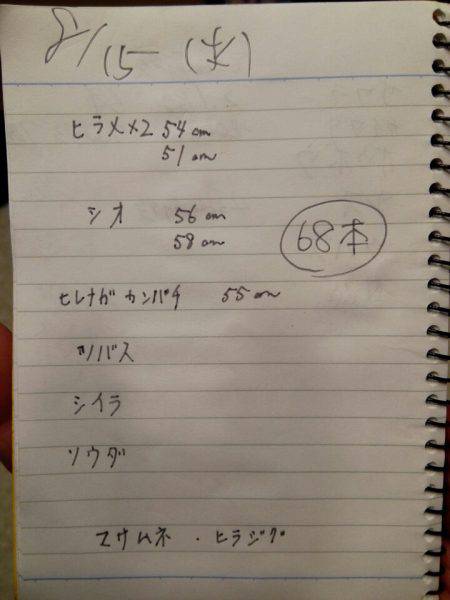 8/15 (水)
ヒラメ×2 54cm
51cm
シオ 56cm
58cm
68本
ヒレナガカンパチ 55cm
ツバス
シイラ
ソウダ
マサムネ・ヒラジグ